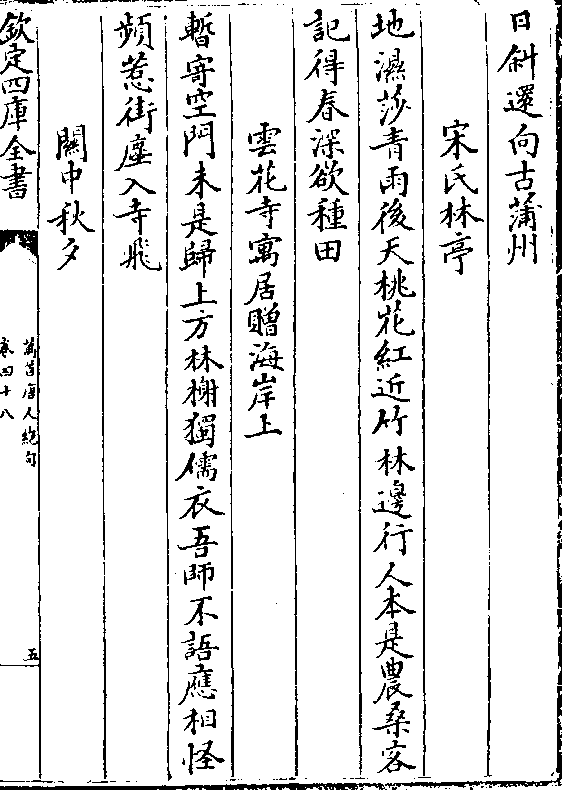 日斜還向古蒲州
宋氏林亭
地濕莎青雨後天桃花紅近竹林邊行人本是農桑客
記得春深欲種田
雲花寺寓居贈海岸上
暫寄空門未是歸上方林榭獨儒衣吾師不語應相怪
頻惹街塵入寺飛
關中秋夕
欽定四庫全書
萬首唐人絶句
卷四十八
五